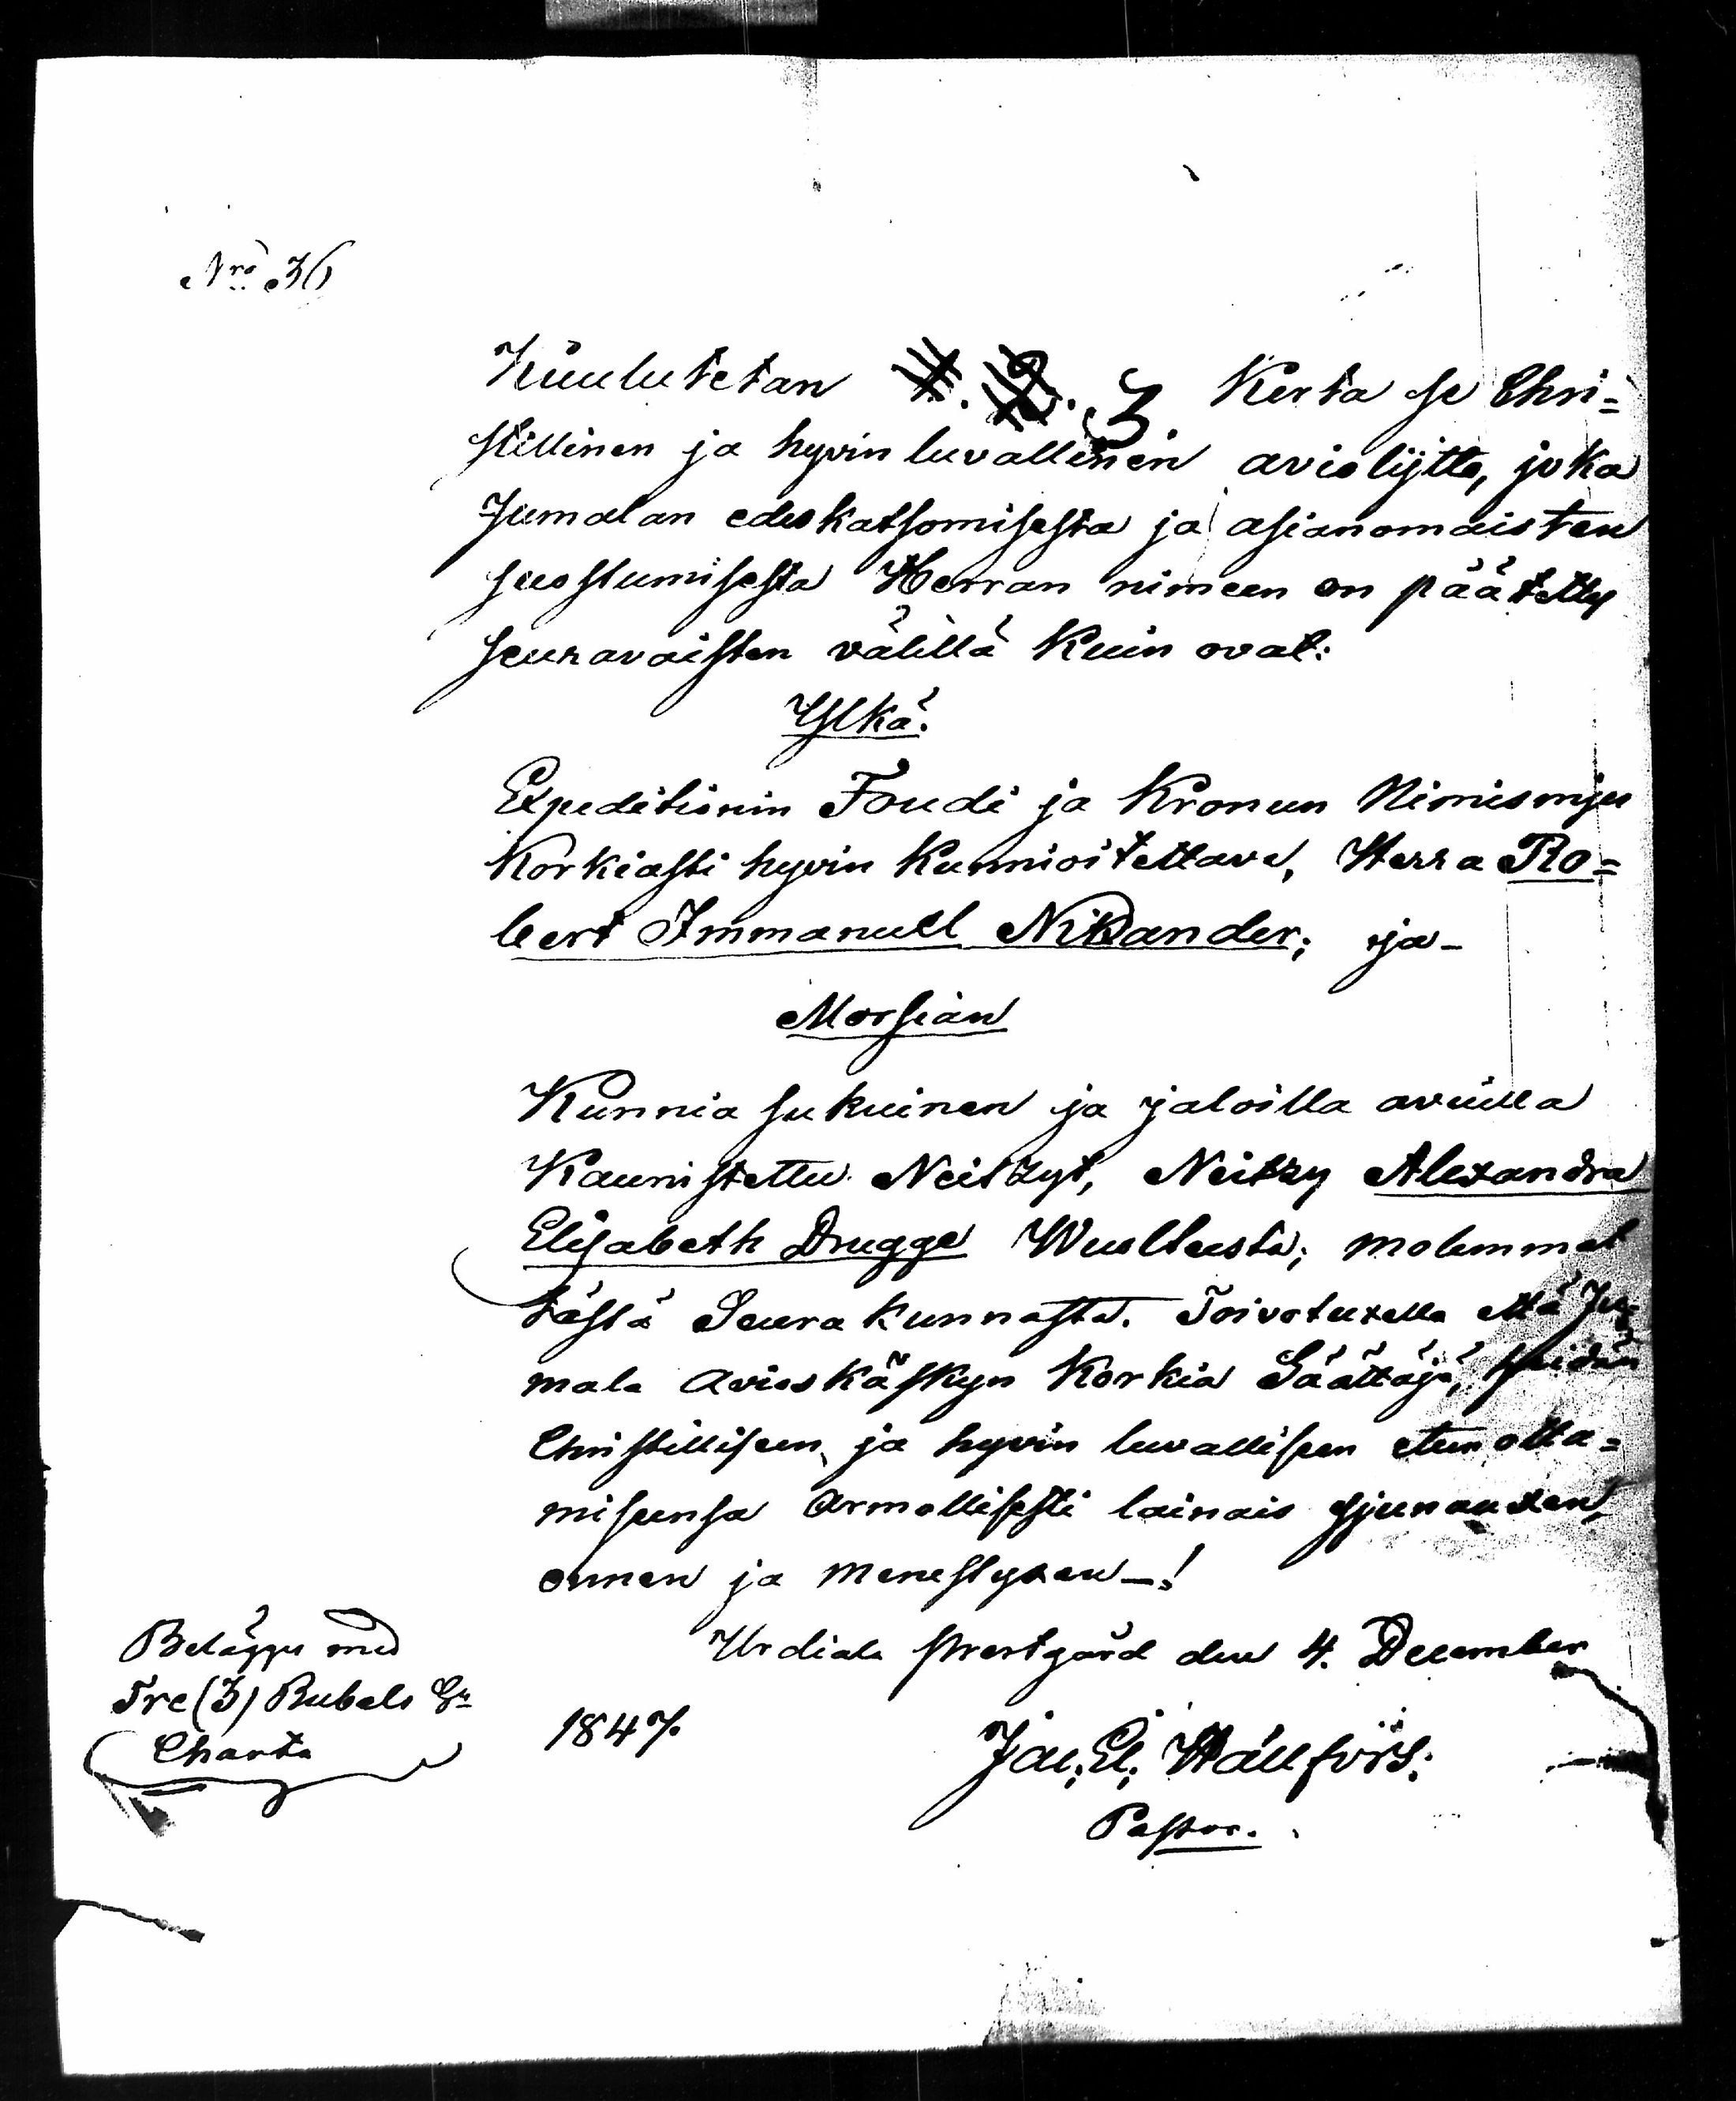 Nro 36
Kuulutetan 1. 2. 3. Kerta se Chri=
stillinen ja hyvin luvallinen aviolijtto, joka
Jumalan edeskatsomisesta ja asianomaisten
suostumisesta Herran nimeen on päätetty
seuravaisten välillä Kuin ovat:
Ylkä.
Expeditionin Foudi ja Kronun Nimismjes
Korkiasti hyvin Kunnioitettava, Herra Ro=
bert Immanuel Nikander; ja-
Morsian
Kunnia sukuinen ja jaloilla avuilla
Kaunistettu Neitzyt, Neitzy Alexandra
Elisabeth Drugge Wueltusta; molemmat
tästä Seurakunnasta. Toivotuxella että Ju=
mala avioskäskyn Korkia Säättäjä, heidän
Christillisen, ja hyvin luvallisen etenotta=
misensa Armollisesti lainais sjunauxen,
onnen ja menestyxen-!
Urdiala Prestgård den 4. December
1847.
Jac. El. Hällfors.
Pastor.
Belägges med
Tre (3) Rubels
Charta